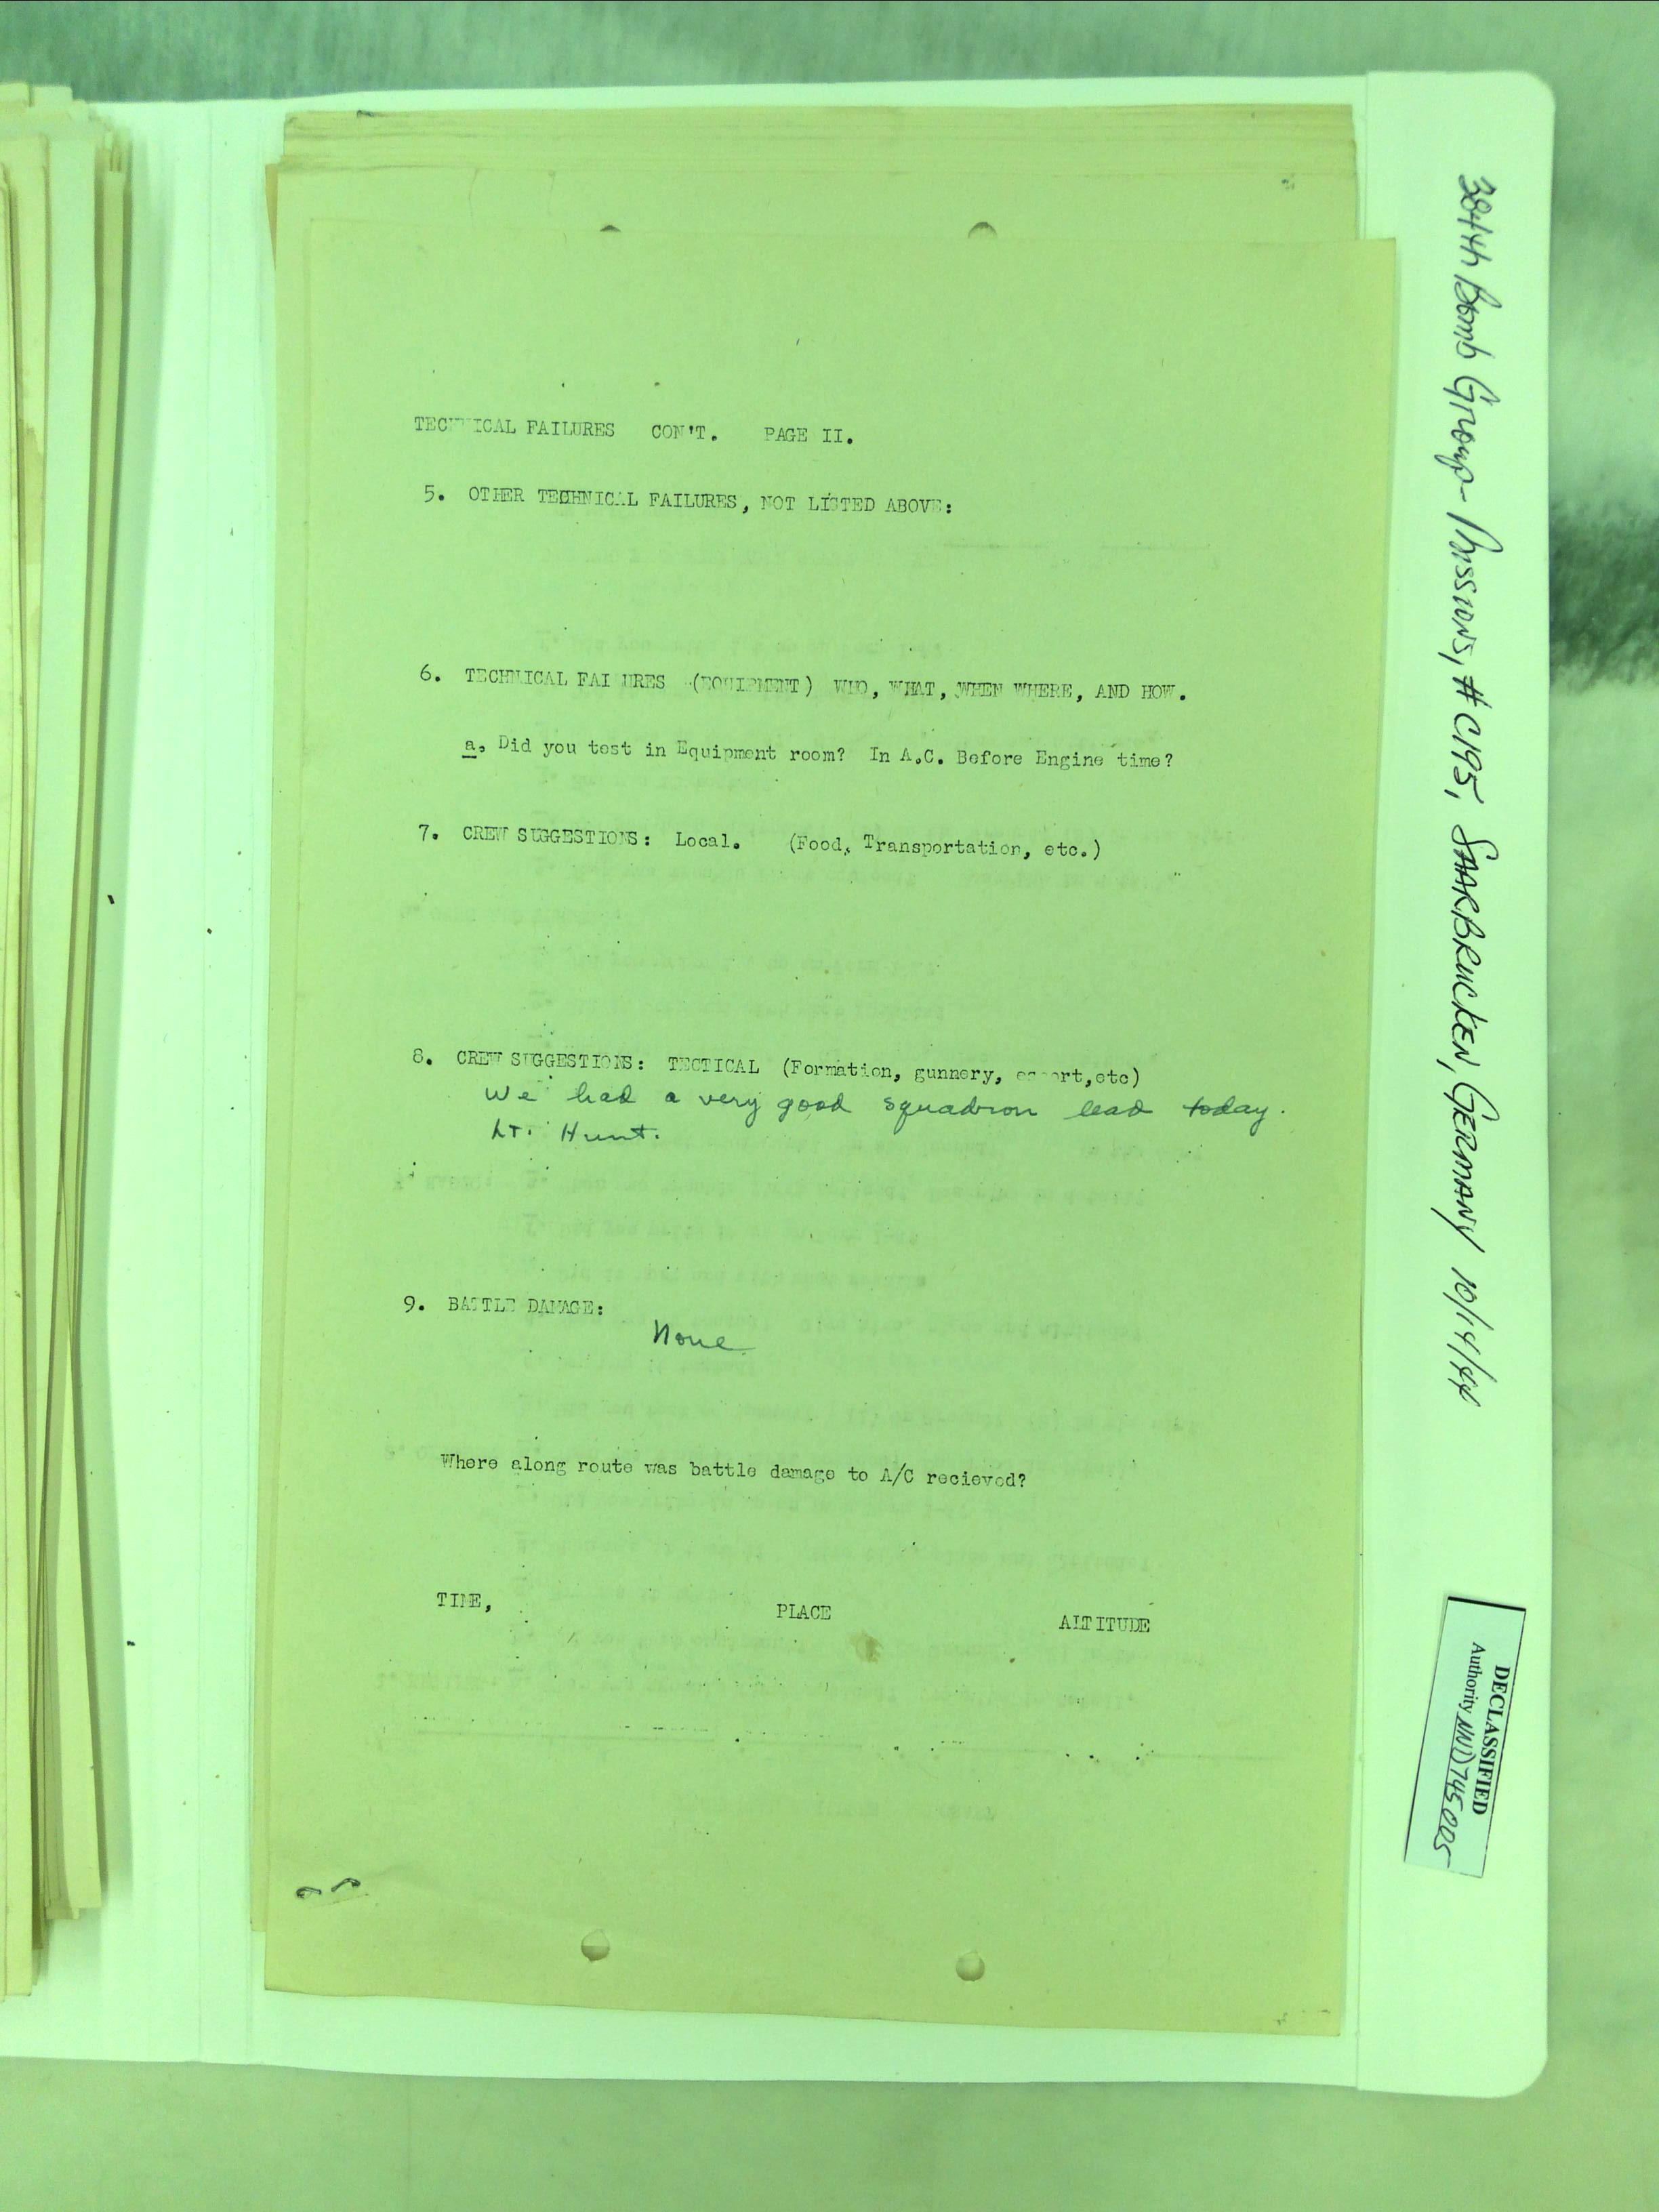 TECHNICAL FAILURES CON'T. PAGE II.
5. OTHER TECHNICAL FAILURES, NOT LISTED ABOVE:
6. TECHNICAL FAI URES (EQUIPMENT) WHO, WHAT, WHEN WHERE, AND HOW.
a. Did you test in Equipment room? In A.C. Before Engine time?
7. CREW SUGGESTIONS: Local. (Food, Transportation, etc.)
8. CREW SUGGESTIONS: TECTICAL (Formation, gunnery, escort,etc)
We had a very good squadron lead today.
Lt. Hunt.
9. BATTLE DAMAGE:
None
Where along route was battle damage to A/C recieved?
TIME, PLACE ALTITUDE
384th Bomb Group - Missions, #C195, SAARBRUCKEN, GERMANY 10/14/44
DECLASSIFIED
Authority NND745005